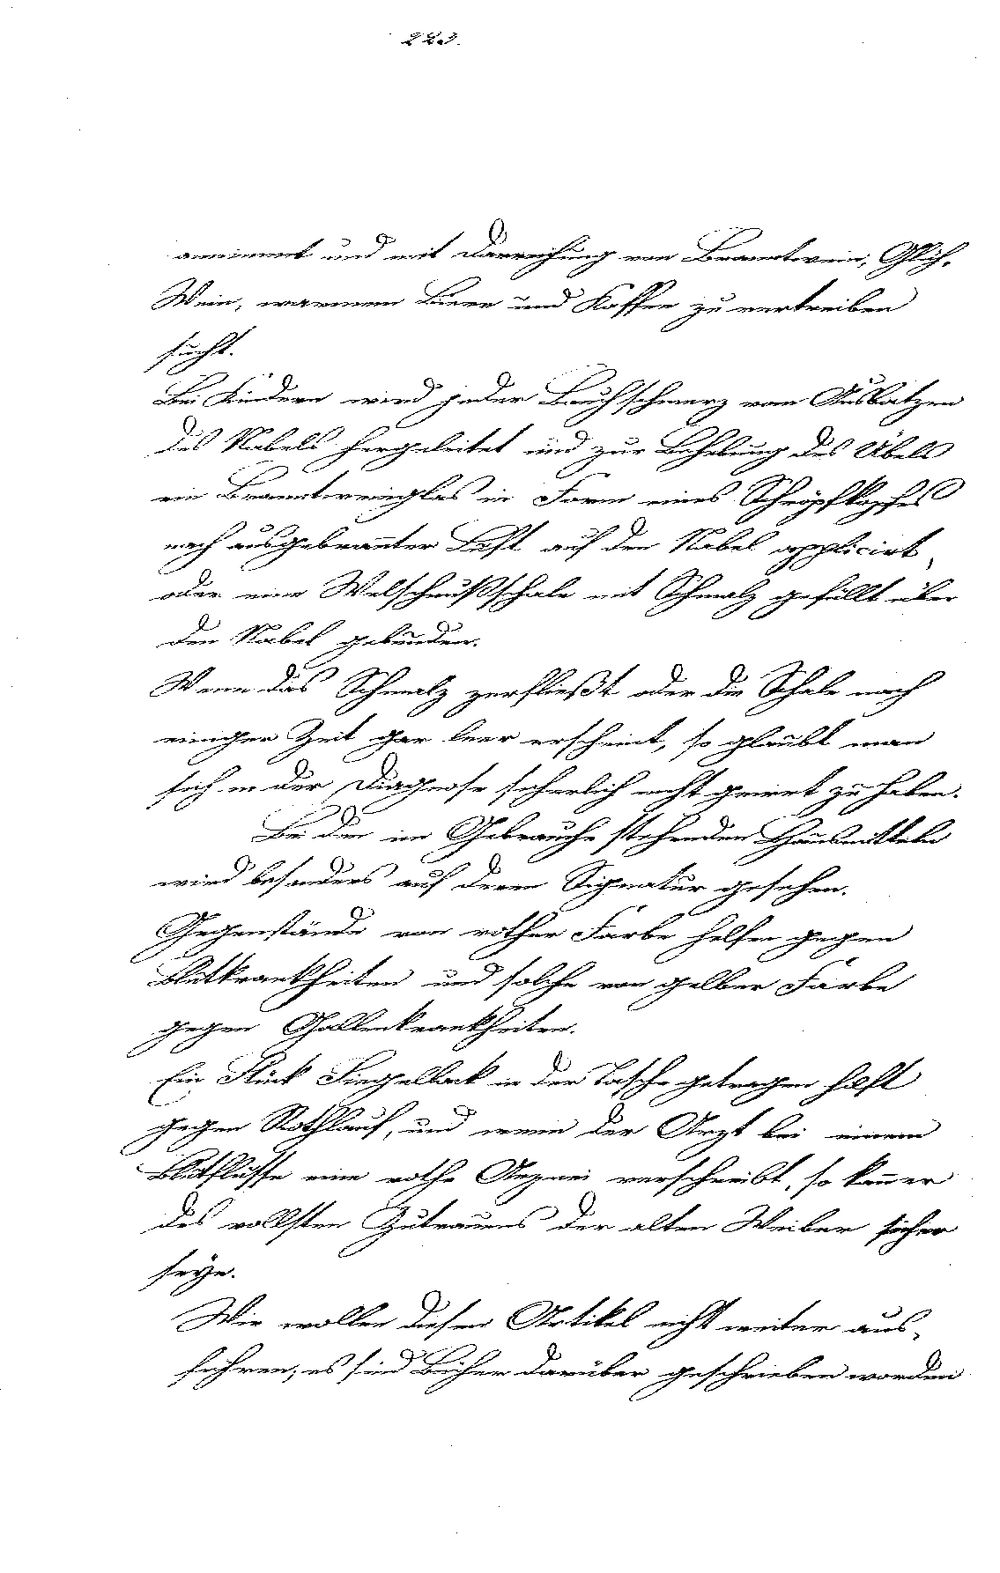 223.
annimmt und mit Darreichung von Branntwein, Glüh-
Wein, warmem Biere und Kaffee zu vertreiben
sucht.
Bei Kindern wird jeder Bauchschmerz vom Ausbatzen
des Nabels hergeleitet und zur Behebung des Übels
ein Branntweinglas in Form eines Schröpfkopfes
nach ausgebrannter Luft auf den Nabel applicirt,
oder eine Welschnußschale mit Schmalz gefüllt über
den Nabel gebunden.
Wenn das Schmalz zerfließt oder die Schale nach
einiger Zeit gar leer erscheint, so glaubt man
sich in der Diagnose sicherlich nicht geirrt zu haben.
Bei den im Gebrauche stehenden Hausmitteln
wird besonders auf deren Signatur gesehen.
Gegenstände von rother Farbe helfen gegen
Blutkrankheiten und solche von gelber Farbe
gegen Gallenkrankheiten.
Ein Stück Siegellack in der Tasche getragen hilft
gegen Rothlauf, und wenn der Arzt bei einem
Blutflusse eine rothe Arznei verschreibt, so kann er
des vollsten Zutrauens der alten Weiber sicher
seyn.
Wir wollen diesen Artikel nicht weiter aus-
führen, es sind Bücher darüber geschrieben worden